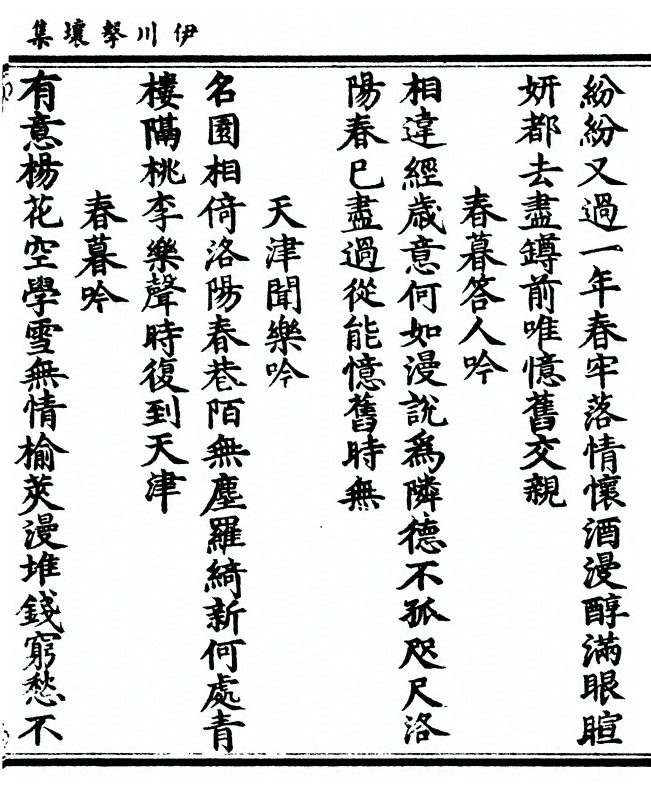 伊川擊壤集
紛紛又過一年春牢落情懷酒漫醇滿眼暄
妍都去盡罇前唯憶舊交親
春暮答人吟
相違經歲意何如漫說爲隣德不孤咫尺洛
陽春已盡過從能憶舊時無
天津聞樂吟
名園相倚洛陽春巷陌無塵羅綺新何處青
樓隔桃李樂聲時復到天津
春暮吟
有意楊花空學雪無情榆莢漫堆錢窮愁不